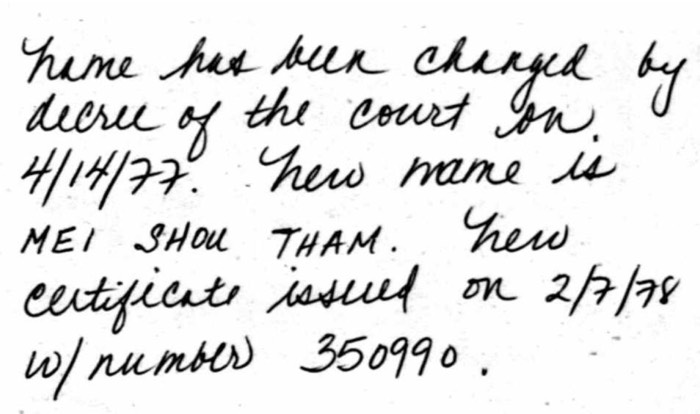 Name has been changed by
decree of the court on
4/14/77. New name is
MEI SHOU THAM. New
certificate issued on 2/7/78
w/ number 350990.